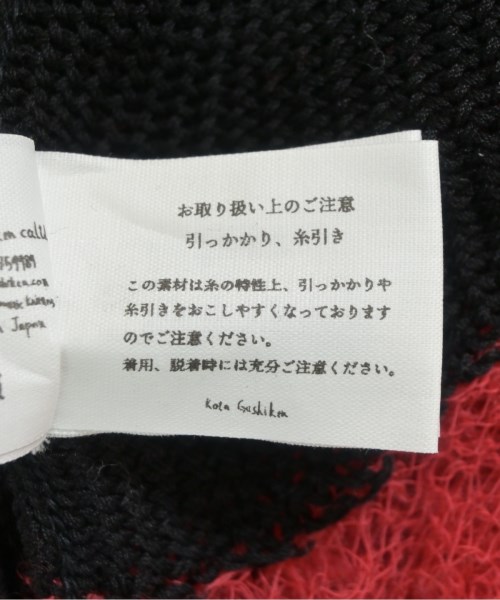 お取り扱い上のご注意
引っかかり、糸引き
この素材は糸の特性上、引っかかりや
糸引きをおこしやすくなっております
のでご注意ください。
着用、脱着時には充分ご注意ください。
Kota Gushiken
Japan